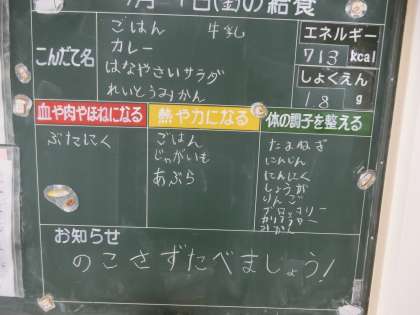 日(金)の給食
こんだて名
ごはん 牛乳
カレー
はなやさいサラダ
れいとうみかん
エネルギー
713 kcal
しょくえん
1.8 g
血や肉やほねになる
ぶたにく
熱や力になる
ごはん
じゃがいも
あぶら
体の調子を整える
たまねぎ
にんじん
にんにく
しょうが
りんご
ブロッコリー
カリフラワー
みかん
お知らせ
のこさずたべましょう!